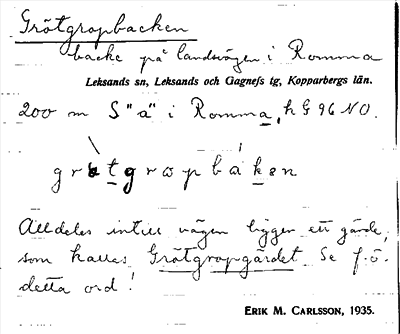 Grötgropbacken
backe på landsvägen i Romma
Leksands sn, Leksands och Gagnefs tg, Kopparbergs län.
200 m S "a" i Romma, h G 96 NO.
grötgropbaken
Alldeles intill vägen ligger ett gärde,
som kallas Grötgropgärdet. Se f.ö.
detta ord!
ERIK M. CARLSSON, 1935.